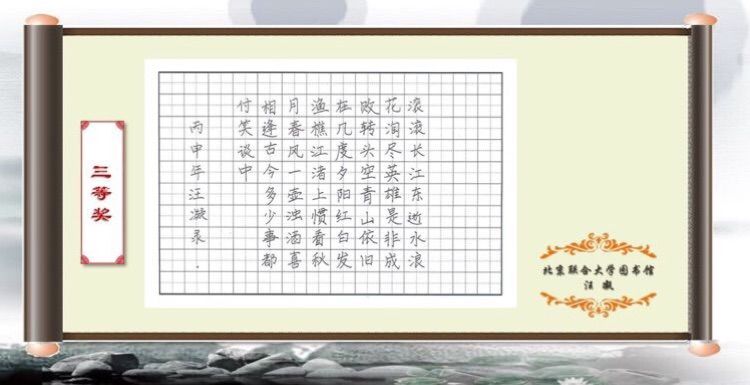 滚滚长江东逝水浪
花淘尽英雄是非成
败转头空青山依旧
在几度夕阳红白发
渔樵江渚上惯看秋
月春风一壶浊酒喜
相逢古今多少事都
付笑谈中
丙申年汪凝录.
三等奖
北京联合大学图书馆
汪凝